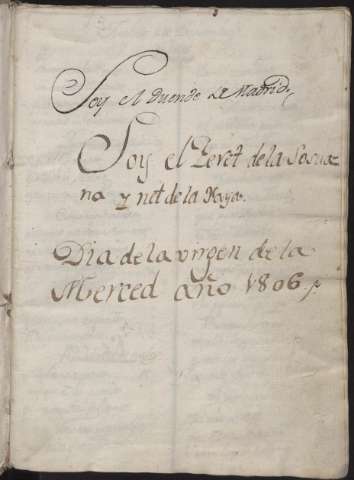 Soy el Duende de Madrid,
Soy el de la
na y de la Maya.
Dia de la virgen de la
Merced año 1806,